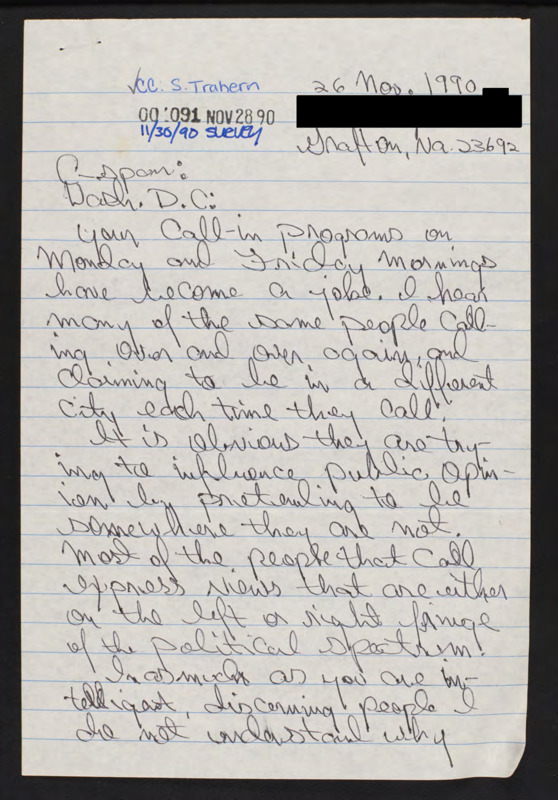 ✓CC: S. Trahern
26 Nov. 1990
00'091 NOV 28 90
11/30/90 SURVEY
Grafton, Va. 23692
C-span:
Wash. D.C:
Your Call-in programs on
Monday and Friday mornings
have become a joke. I hear
many of the same people Call-
ing over and over again, and
claiming to be in a different
city each time they call!
It is obvious they are try-
ing to influence public opin-
ion by pretending to be
somewhere they are not.
Most of the people that Call
express views that are either
on the left or right fringe
of the political spectrum!
Inasmuch as you are in-
telligent, discerning people I
do not understand why